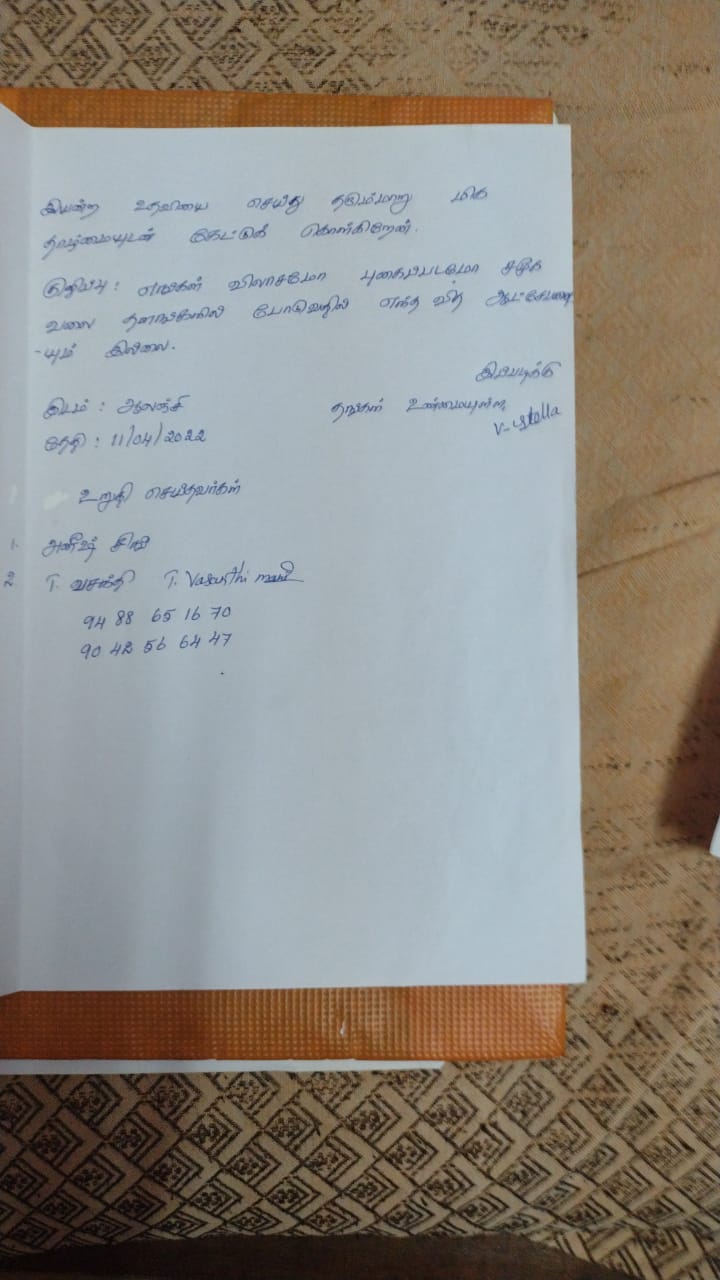 இயன்ற உதவியை செய்து தருமாறு மிக
தாழ்மையுடன் கேட்டுக் கொள்கிறேன்.
குறிப்பு : எங்கள் விலாசமோ புகைப்படமோ சமூக
வலை தளங்களில் போடுவதில் எந்த வித ஆட்சேபனை
-யும் இல்லை.
இப்படிக்கு
இடம் : ஆலஞ்சி தங்கள் உண்மையுள்ள,
தேதி : 11/04/2022 V-Stella
உறுதி செய்தவர்கள்
1. அனீஷ் சிவ
2. T. வசந்தி T. Vasanthi
94 88 65 16 70
90 42 56 64 47